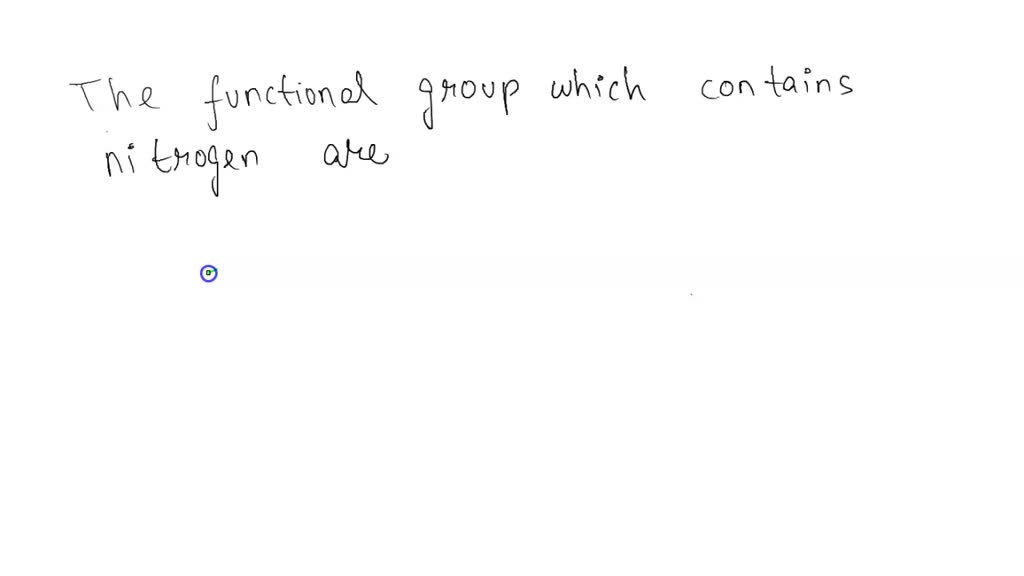 The functional group which contains
nitrogen are